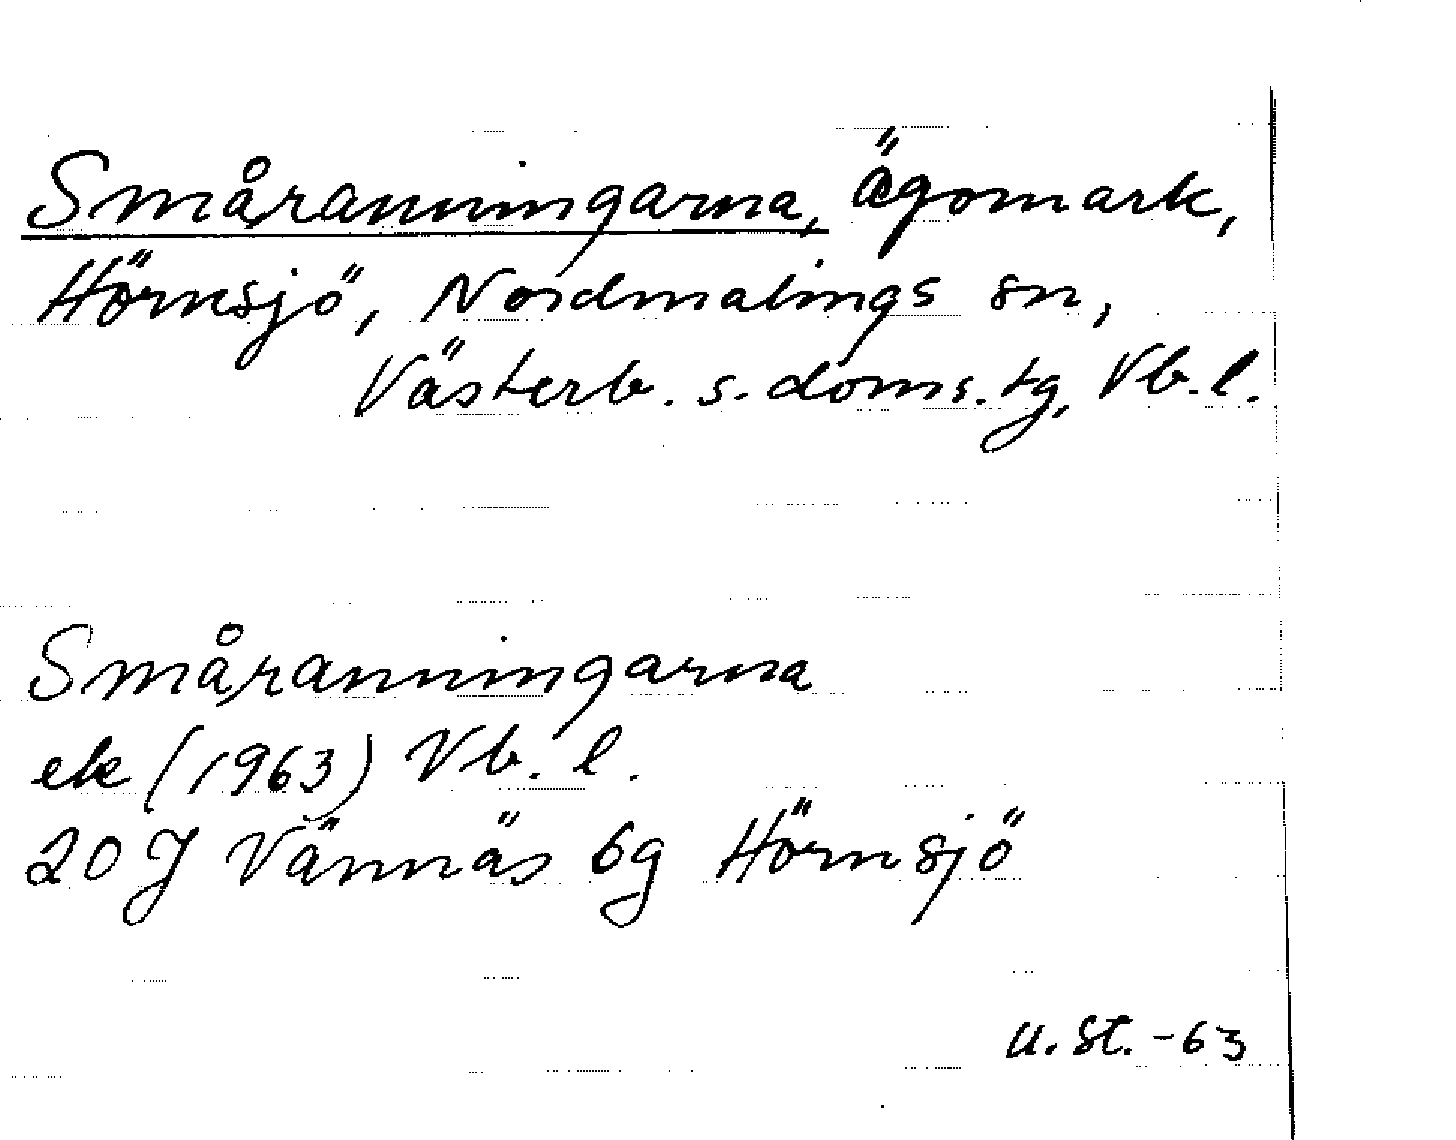 Småranningarna, ägomark,
Hörnsjö, Nordmalings sn,
Västerb. s. doms. tg, Vb. l.
Småranningarna
ek (1963) Vb. l.
20 J Vännäs 6g Hörnsjö
U. St. -63